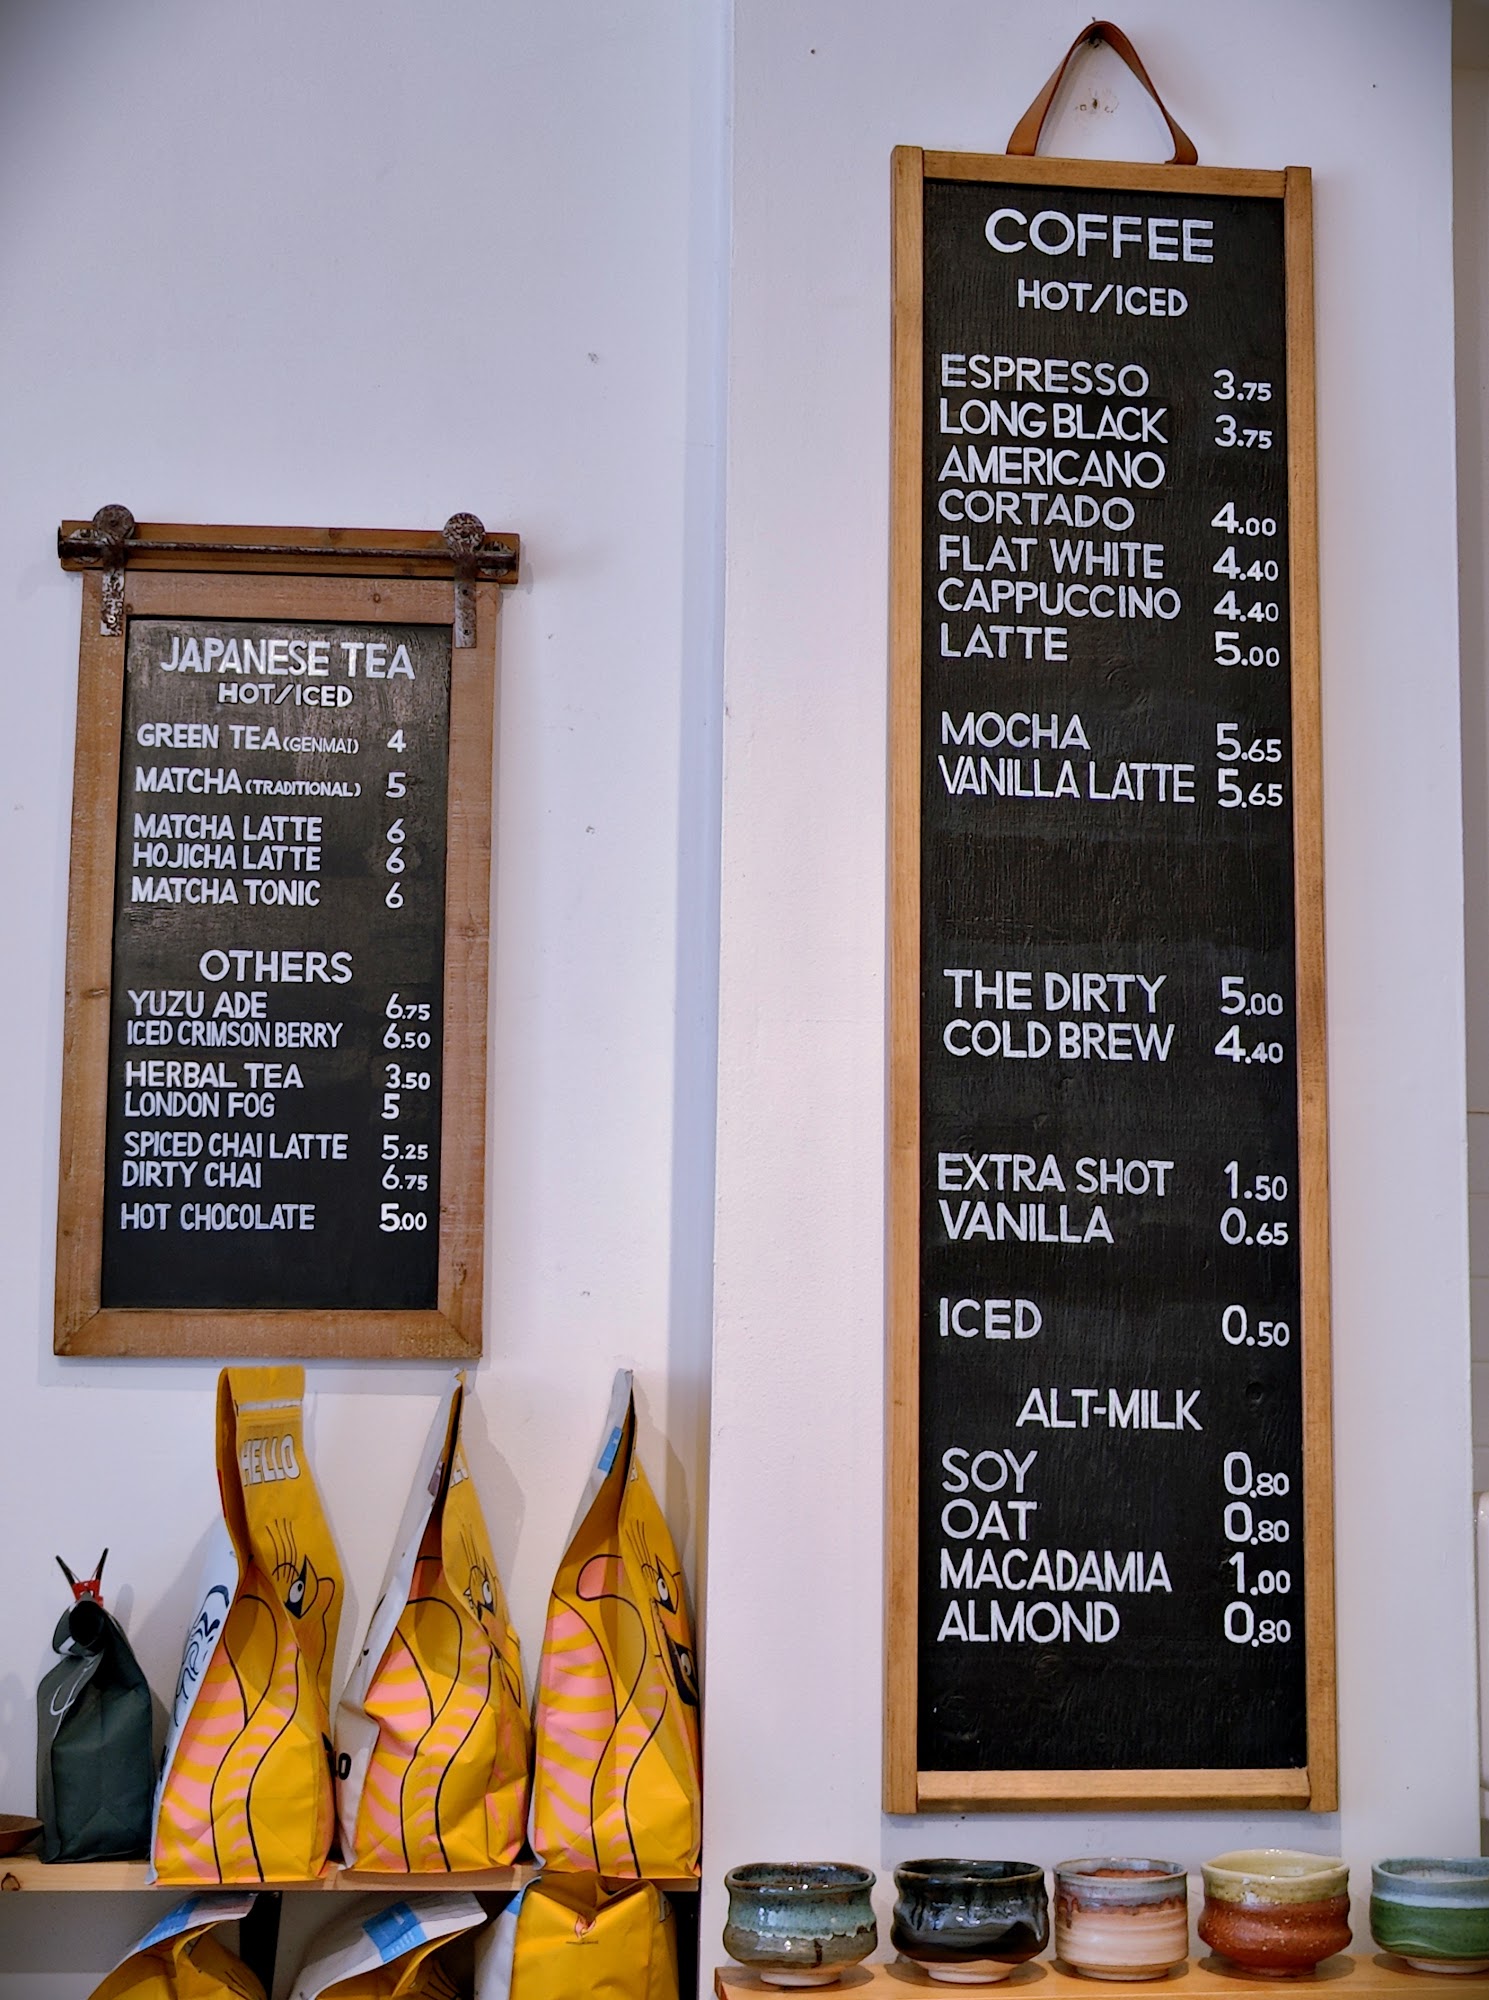 JAPANESE TEA
HOT/ICED
GREEN TEA (GENMAI) 4
MATCHA (TRADITIONAL) 5
MATCHA LATTE 6
HOJICHA LATTE 6
MATCHA TONIC 6
OTHERS
YUZU ADE 6.75
ICED CRIMSON BERRY 6.50
HERBAL TEA 3.50
LONDON FOG 5
SPICED CHAI LATTE 5.25
DIRTY CHAI 6.75
HOT CHOCOLATE 5.00
HELLO
COFFEE
HOT/ICED
ESPRESSO 3.75
LONG BLACK 3.75
AMERICANO
CORTADO 4.00
FLAT WHITE 4.40
CAPPUCCINO 4.40
LATTE 5.00
MOCHA 5.65
VANILLA LATTE 5.65
THE DIRTY 5.00
COLD BREW 4.40
EXTRA SHOT 1.50
VANILLA 0.65
ICED 0.50
ALT-MILK
SOY 0.80
OAT 0.80
MACADAMIA 1.00
ALMOND 0.80